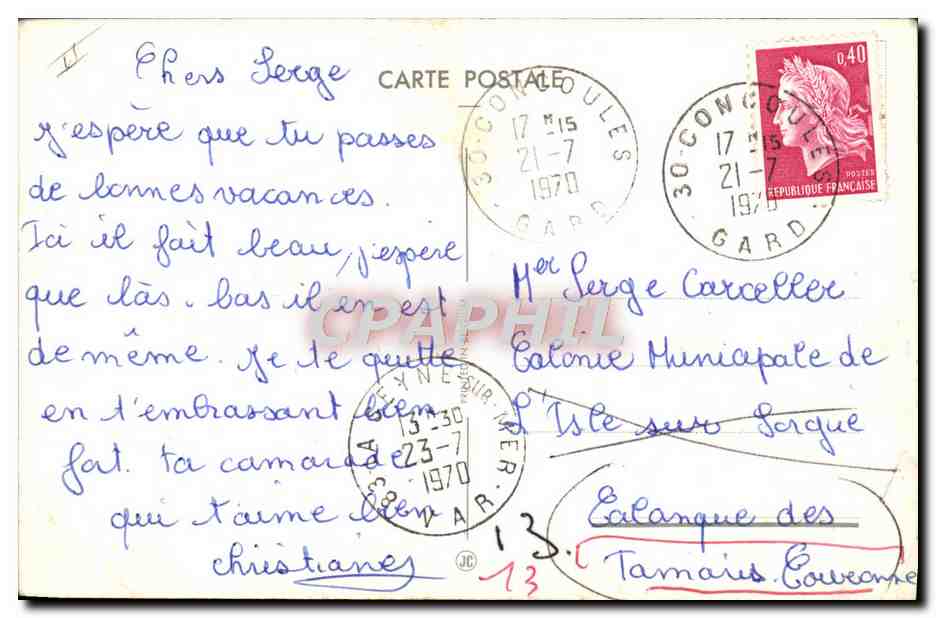 II
Chers Serge
CARTE POSTALE
J'espère que tu passes
de bonnes vacances.
Ici il fait beau, j'espère
que làs-bas il en est
de même. Je te quitte
en t'embrassant bien
fort. ta camarade
qui t'aime bien
Christianes
30-CONCOULES
17 H 15
21-7
1970
GARD
30-CONCOULES
17 H 15
21-7
1970
GARD
0,40
POSTES
REPUBLIQUE FRANÇAISE
Mer Serge Carceller
Colonie Municipale de
L'Isle sur Sorgue
Calanque des
Tamaris. Couronne
13.
13
83 LA SEYNE-SUR-MER
13 H 30
23-7
1970
VAR
PRINTED IN
JC
CPAPHIL